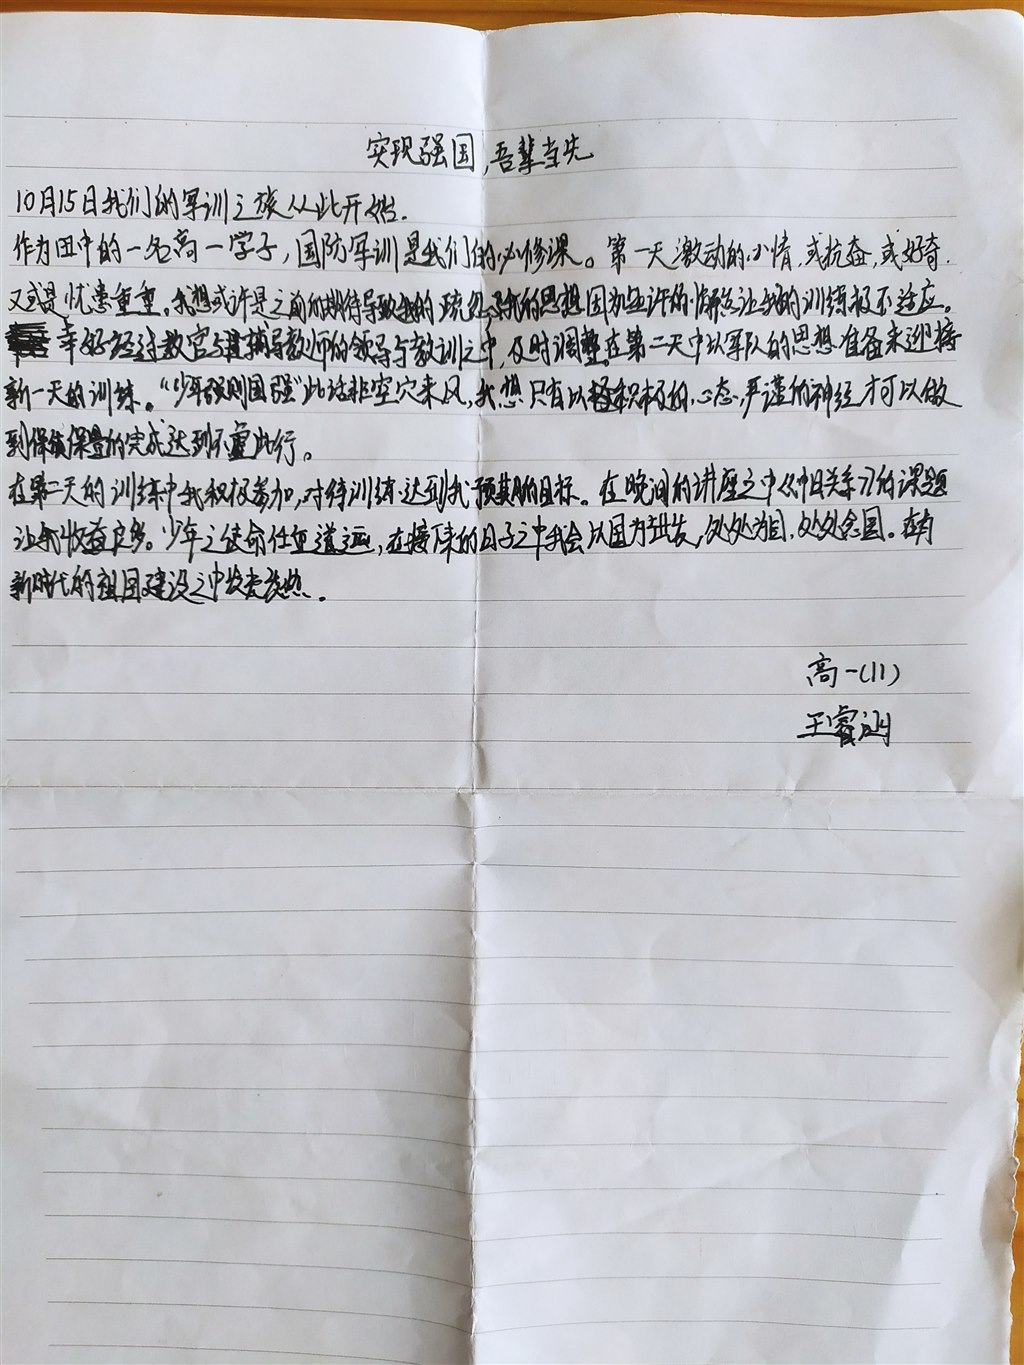 实现强国,吾辈当先
10月15日我们的军训之旅从此开始.
作为田中的一名高一学子,国防军训是我们的必修课。第一天激动的心情,或抗奋,或好奇.
又或是忧患重重。我想或许是之前的期待导致我的疏忽,我的思想因为些许的懈怠让我的训练极不适应。
幸好经过教官与其辅导教师的领导与教训之中,及时调整在第二天中以军队的思想准备来迎接
新一天的训练。“少年强则国强”此话非空穴来风,我想只有以积极的心态,严谨的神经才可以做
到保质保量的完成达到不虚此行。
在第二天的训练中我积极参加,对待训练达到我预期的目标。在晚间的讲座之中《中日关系》的课题
让我收益良多。少年之使命任重道远,在接下来的日子之中我会以国为出发,处处为国,处处念国。在有
新时代的祖国建设之中发光发热.
高一(11)
王睿涵